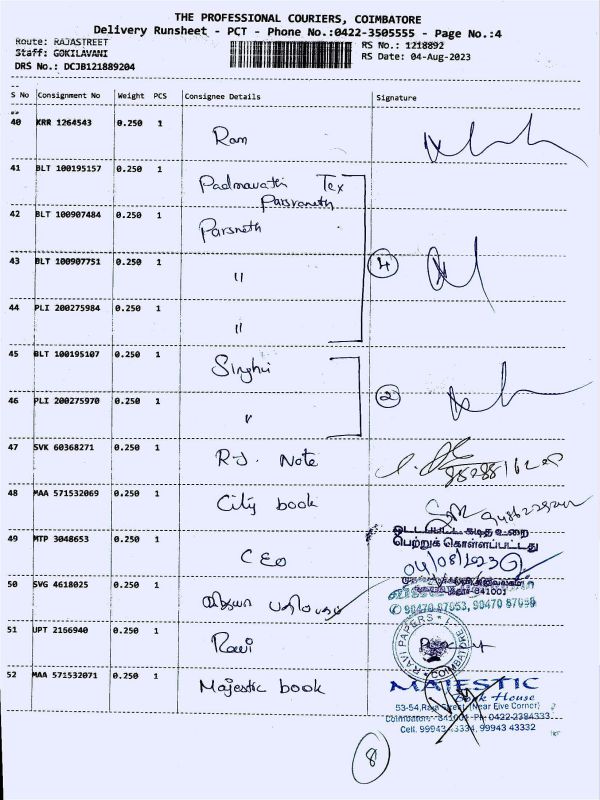 THE PROFESSIONAL COURIERS, COIMBATORE
Delivery Runsheet - PCT - Phone No.:0422-3505555 - Page No.:4
Route: RAJASTREET
RS No.: 1218892
Staff: GOKILAVANI
RS Date: 04-Aug-2023
DRS No.: DCJB121889204
S No Consignment No Weight PCS Consignee Details Signature
40 KRR 1264543 0.250 1 Ram
41 BLT 100195157 0.250 1 Padmavathi Tex
Parsvanath
42 BLT 100907484 0.250 1 Parsneth
43 BLT 100907751 0.250 1 "
4
44 PLI 200275984 0.250 1 "
45 BLT 100195107 0.250 1 Singhvi
46 PLI 200275970 0.250 1 "
2
47 SVK 60368271 0.250 1 R.J. Note
48 MAA 571532069 0.250 1 City book
ஒட்டப்பட்ட கடித உறை
பெற்றுக் கொள்ளப்பட்டது
49 MTP 3048653 0.250 1 CEO
04/08/2023
641001
50 SVG 4618025 0.250 1
90470 87053, 90470 87050
51 UPT 2166940 0.250 1 Ravi
RAVI PAPERS
COIMBATORE
52 MAA 571532071 0.250 1 Majestic book
MAJESTIC
Book House
53-54, Raja Street (Near Five Corner)
Coimbatore - 641001 Ph: 0422-2384333
Cell: 99943 43334, 99943 43332
8